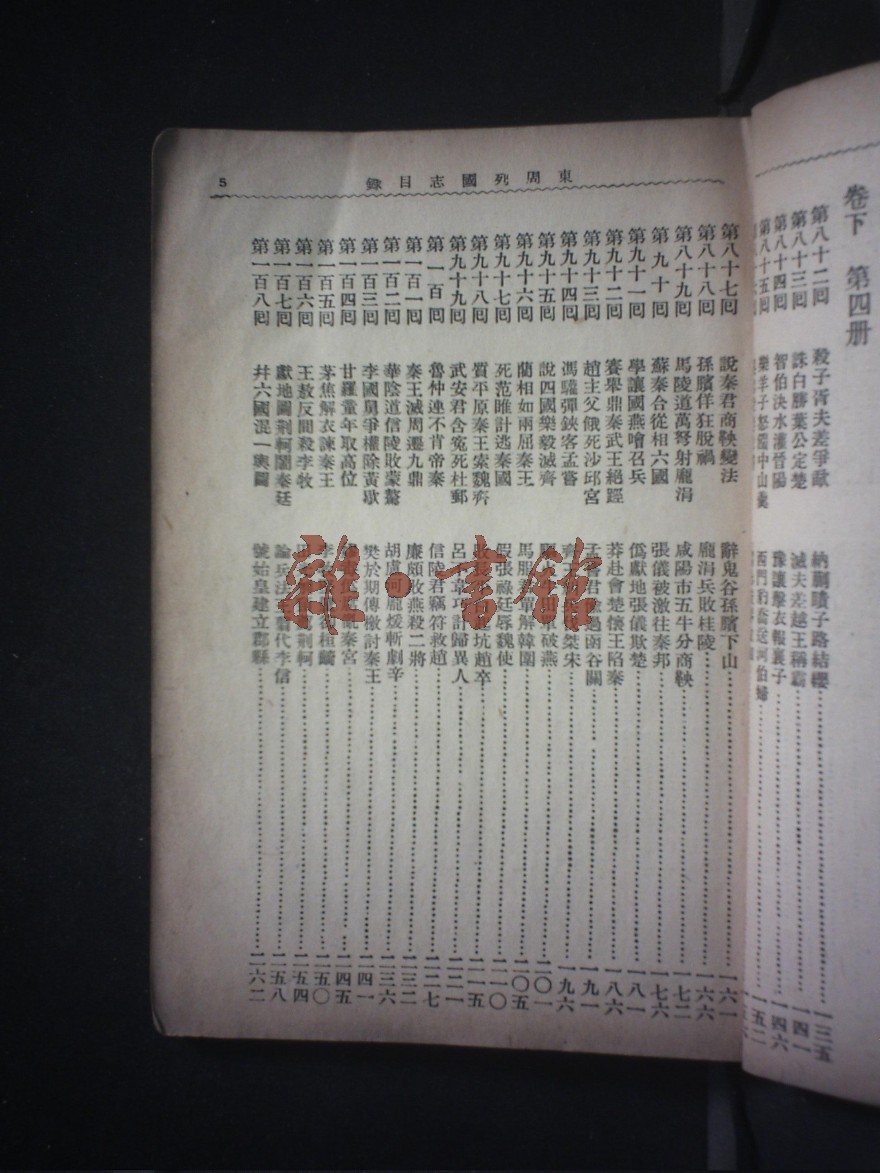 卷下 第四册
第八十二囘 殺子胥夫差爭歃 納蒯瞶子路結纓 一三五
第八十三囘 誅白勝葉公定楚 滅夫差越王稱霸 一四一
第八十四囘 智伯決水灌晉陽 豫讓擊衣報襄子 一四六
第八十五囘 樂羊子怒餟中山羹 西門豹喬送河伯婦 一五二
東周列國志目錄
5
第八十七囘 說秦君商鞅變法 辭鬼谷孫臏下山 一六一
第八十八囘 孫臏佯狂脫禍 龐涓兵敗桂陵 一六六
第八十九囘 馬陵道萬弩射龐涓 咸陽市五牛分商鞅 一七二
第九十囘 蘇秦合從相六國 張儀被激往秦邦 一七六
第九十一囘 學讓國燕噲召兵 僞獻地張儀欺楚 一八一
第九十二囘 賽舉鼎秦武王絕脛 莽赴會楚懷王陷秦 一八六
第九十三囘 趙主父餓死沙邱宮 孟嘗君偷過函谷關 一九一
第九十四囘 馮驩彈鋏客孟嘗 齊王 桀宋 一九六
第九十五囘 說四國樂毅滅齊 破燕 二〇一
第九十六囘 藺相如兩屈秦王 馬服君單解韓圍 二〇五
第九十七囘 死范睢計逃秦國 假張祿廷辱魏使 二一〇
第九十八囘 質平原秦王索魏齊 敗長 坑趙卒 二一五
第九十九囘 武安君含寃死杜郵 呂不韋巧計歸異人 二二一
第一百囘 魯仲連不肯帝秦 信陵君竊符救趙 二二七
第一百一囘 秦王滅周遷九鼎 廉頗敗燕殺二將 二三二
第一百二囘 華陰道信陵敗蒙驁 胡盧河龐煖斬劇辛 二三六
第一百三囘 李國舅爭權除黃歇 樊於期傳檄討秦王 二四一
第一百四囘 甘羅童年取高位 秦宮 二四五
第一百五囘 茅焦解衣諫秦王 李 桓齮 二五〇
第一百六囘 王敖反間殺李牧 荊軻 二五四
第一百七囘 獻地圖荊軻鬧秦廷 論兵法王翦代李信 二五八
第一百八囘 幷六國混一輿圖 號始皇建立郡縣 二六二
雜·書館